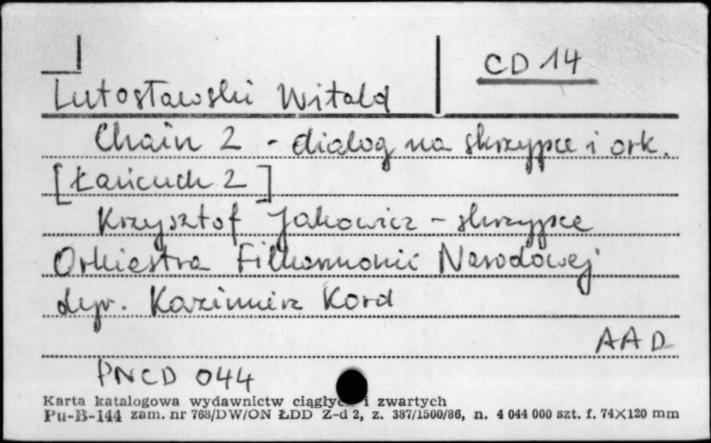 CD 14
Lutosławski Witold
Chain 2 - dialog na skrzypce i ork.
[Łańcuch 2]
Krzysztof Jakowicz - skrzypce
Orkiestra Filharmonii Narodowej
dyr. Kazimierz Kord
AAD
PNCD 044
Karta katalogowa wydawnictw ciągłyc i zwartych
Pu-B-144 zam. nr 768/DW/ON ŁDD Z-d 2, z. 387/1500/86, n. 4 044 000 szt. f. 74×120 mm